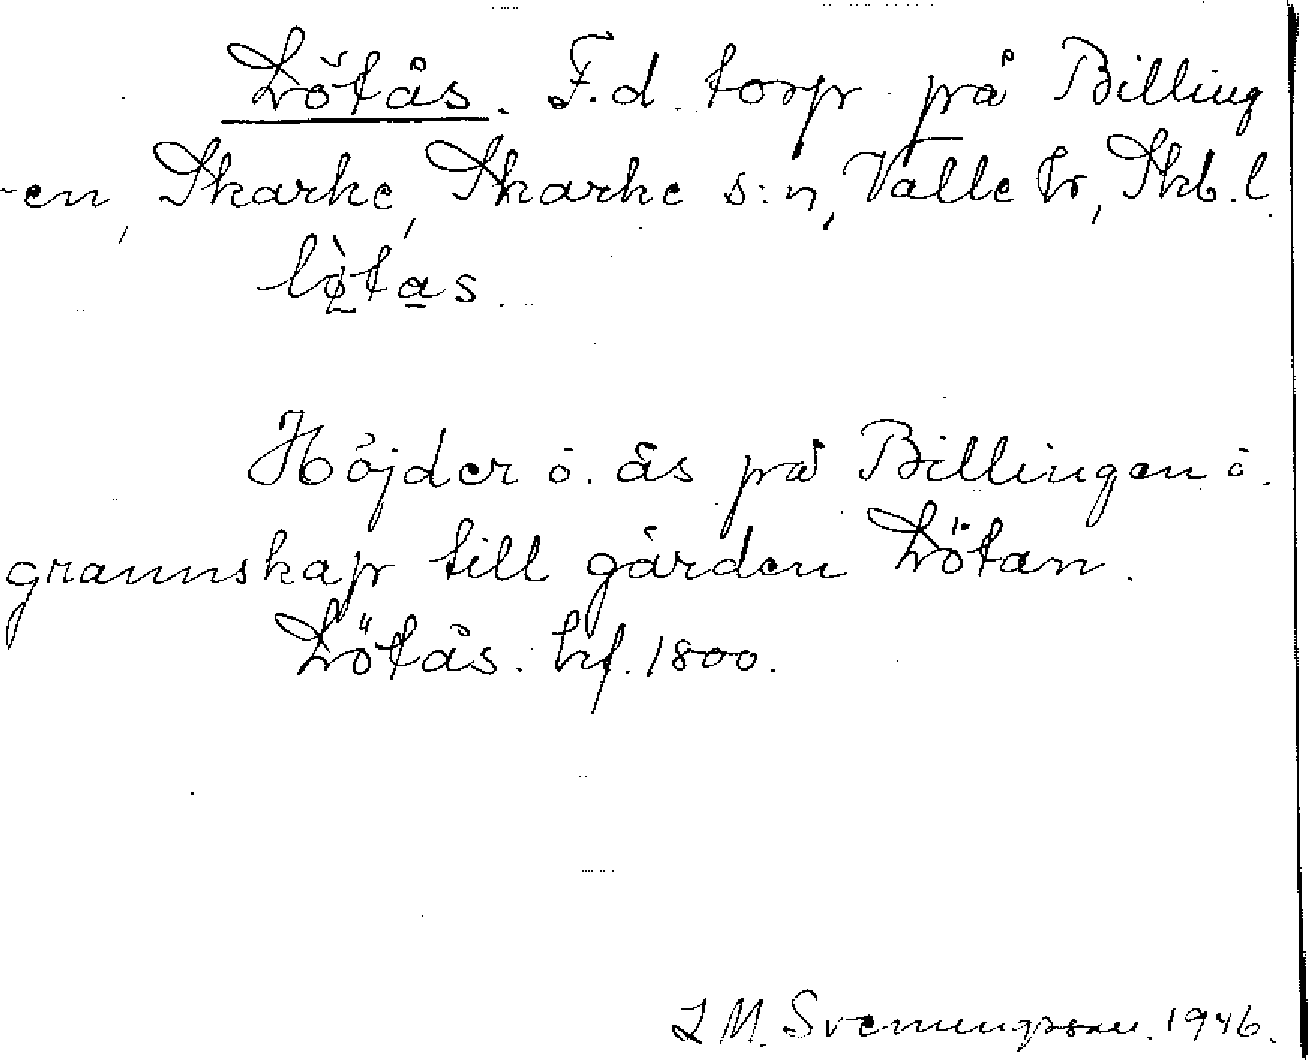 Lötås. F.d. torp på Billing
-en, Skarke, Skarke s:n, Valle hr, Skb. l.
lø̀tas.
Höjder o. ås på Billingen i
grannskap till gården Lötan.
Lötås. hf. 1800.
L M. Svenungsson. 1946.